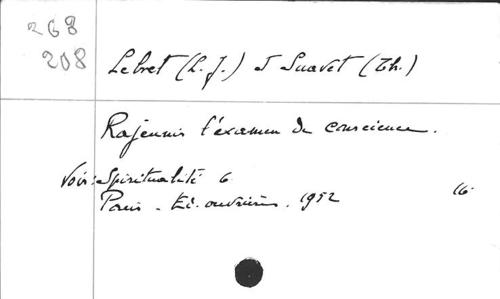 268
208
Lebret (L.J.) et Suavet (Th.)
Rajeunir l'examen de conscience.
Voir: Spiritualité 6
Paris - Ed. ouvrières. 1952 16-